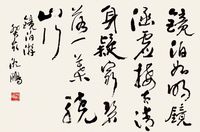 鏡泊如明鏡
涵虚接太清
身疑窮碧
落一葉繞
山行
鏡泊湖
沈鵬